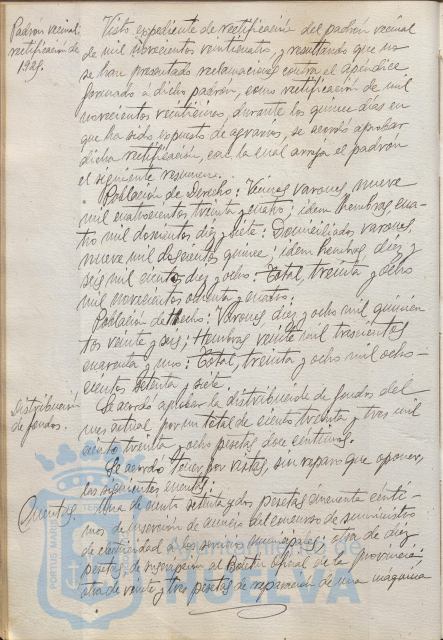 Padron vecinal:
rectificación de
1925.
Visto expediente de rectificación del padrón vecinal
de mil novecientos veinticuatro, y resultando que no
se han presentado reclamaciones contra el apéndice
formado a dicho padrón, como rectificación de mil
novecientos veinticinco, durante los quince días en
que ha sido expuesto de agravios, se acordó aprobar
dicha rectificación, con la cual arroja el padrón
el siguiente resumen:
Población de Derecho: Vecinos varones, nueve
mil cuatrocientos treinta y cuatro; idem hembras, cua-
tro mil doscientos diez y siete: Domiciliados varones,
nueve mil doscientos quince; idem hembras, diez y
seis mil ciento diez y ocho: Total, treinta y ocho
mil novecientos ochenta y cuatro:
Población de Hecho: Varones diez y ocho mil quinien
tos veinte y seis; Hembras veinte mil trescientos
cuarenta y uno: Total, treinta y ocho mil ocho-
cientos sesenta y siete.
Distribución
de fondos.
Se acordó aprobar la distribución de fondos del
mes actual por un total de ciento treinta y tres mil
ciento treinta y ocho pesetas doce céntimos.
Se acordó tener por vistas, sin reparo que oponer,
las siguientes cuentas:
Cuentas.
Una de ciento setenta y dos pesetas cincuenta cénti-
mos de inserción de anuncio del concurso de suministro
de electricidad a los servicios municipales; otra de diez
pesetas de suscripción al Boletín Oficial de la provincia;
otra de veinte y tres pesetas de reparación de una máquina
PORTUS MARIS
Ayuntamiento de
HUELVA